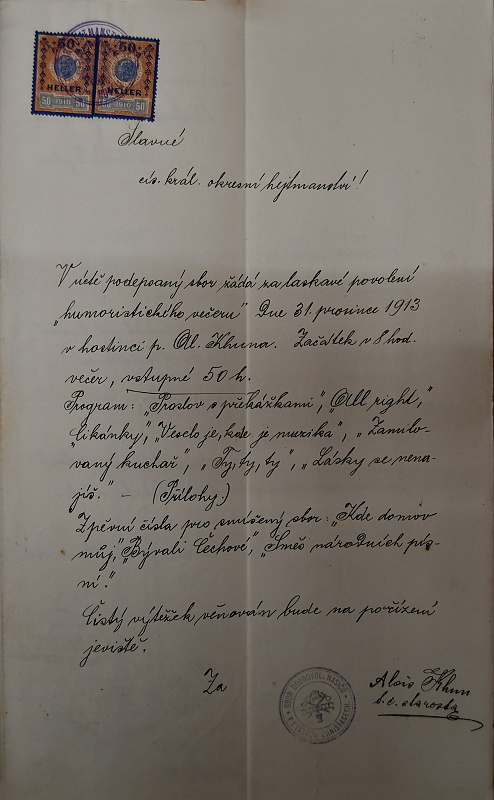 50 50
HELLER HELLER
50 1910 50 50 1910 50
Slavné
cís. král. okresní hejtmanství!
V úctě podepsaný sbor žádá za laskavé povolení
„humoristického večeru" Dne 31. prosince 1913
v hostinci p. Al. Khuna. Začátek v 8 hod.
večer, vstupné 50 h.
Program: „Proslov s překážkami", „All right,"
„Cikánky", „Veselo je, kde je muzika", „Zamilo-
vaný kuchař", „Ty, ty, ty", „Lásky se nena-
jíš." – (Přílohy:)
Zpěvní čísla pro smíšený sbor: „Kde domov
můj," „Bývali Čechové", „Směs národních pís-
ní."
Čistý výtěžek věnován bude na pořízení
jeviště.
Za
SBOR DOBROVOL. HASIČŮ
Alois Khun
t. č. starosta